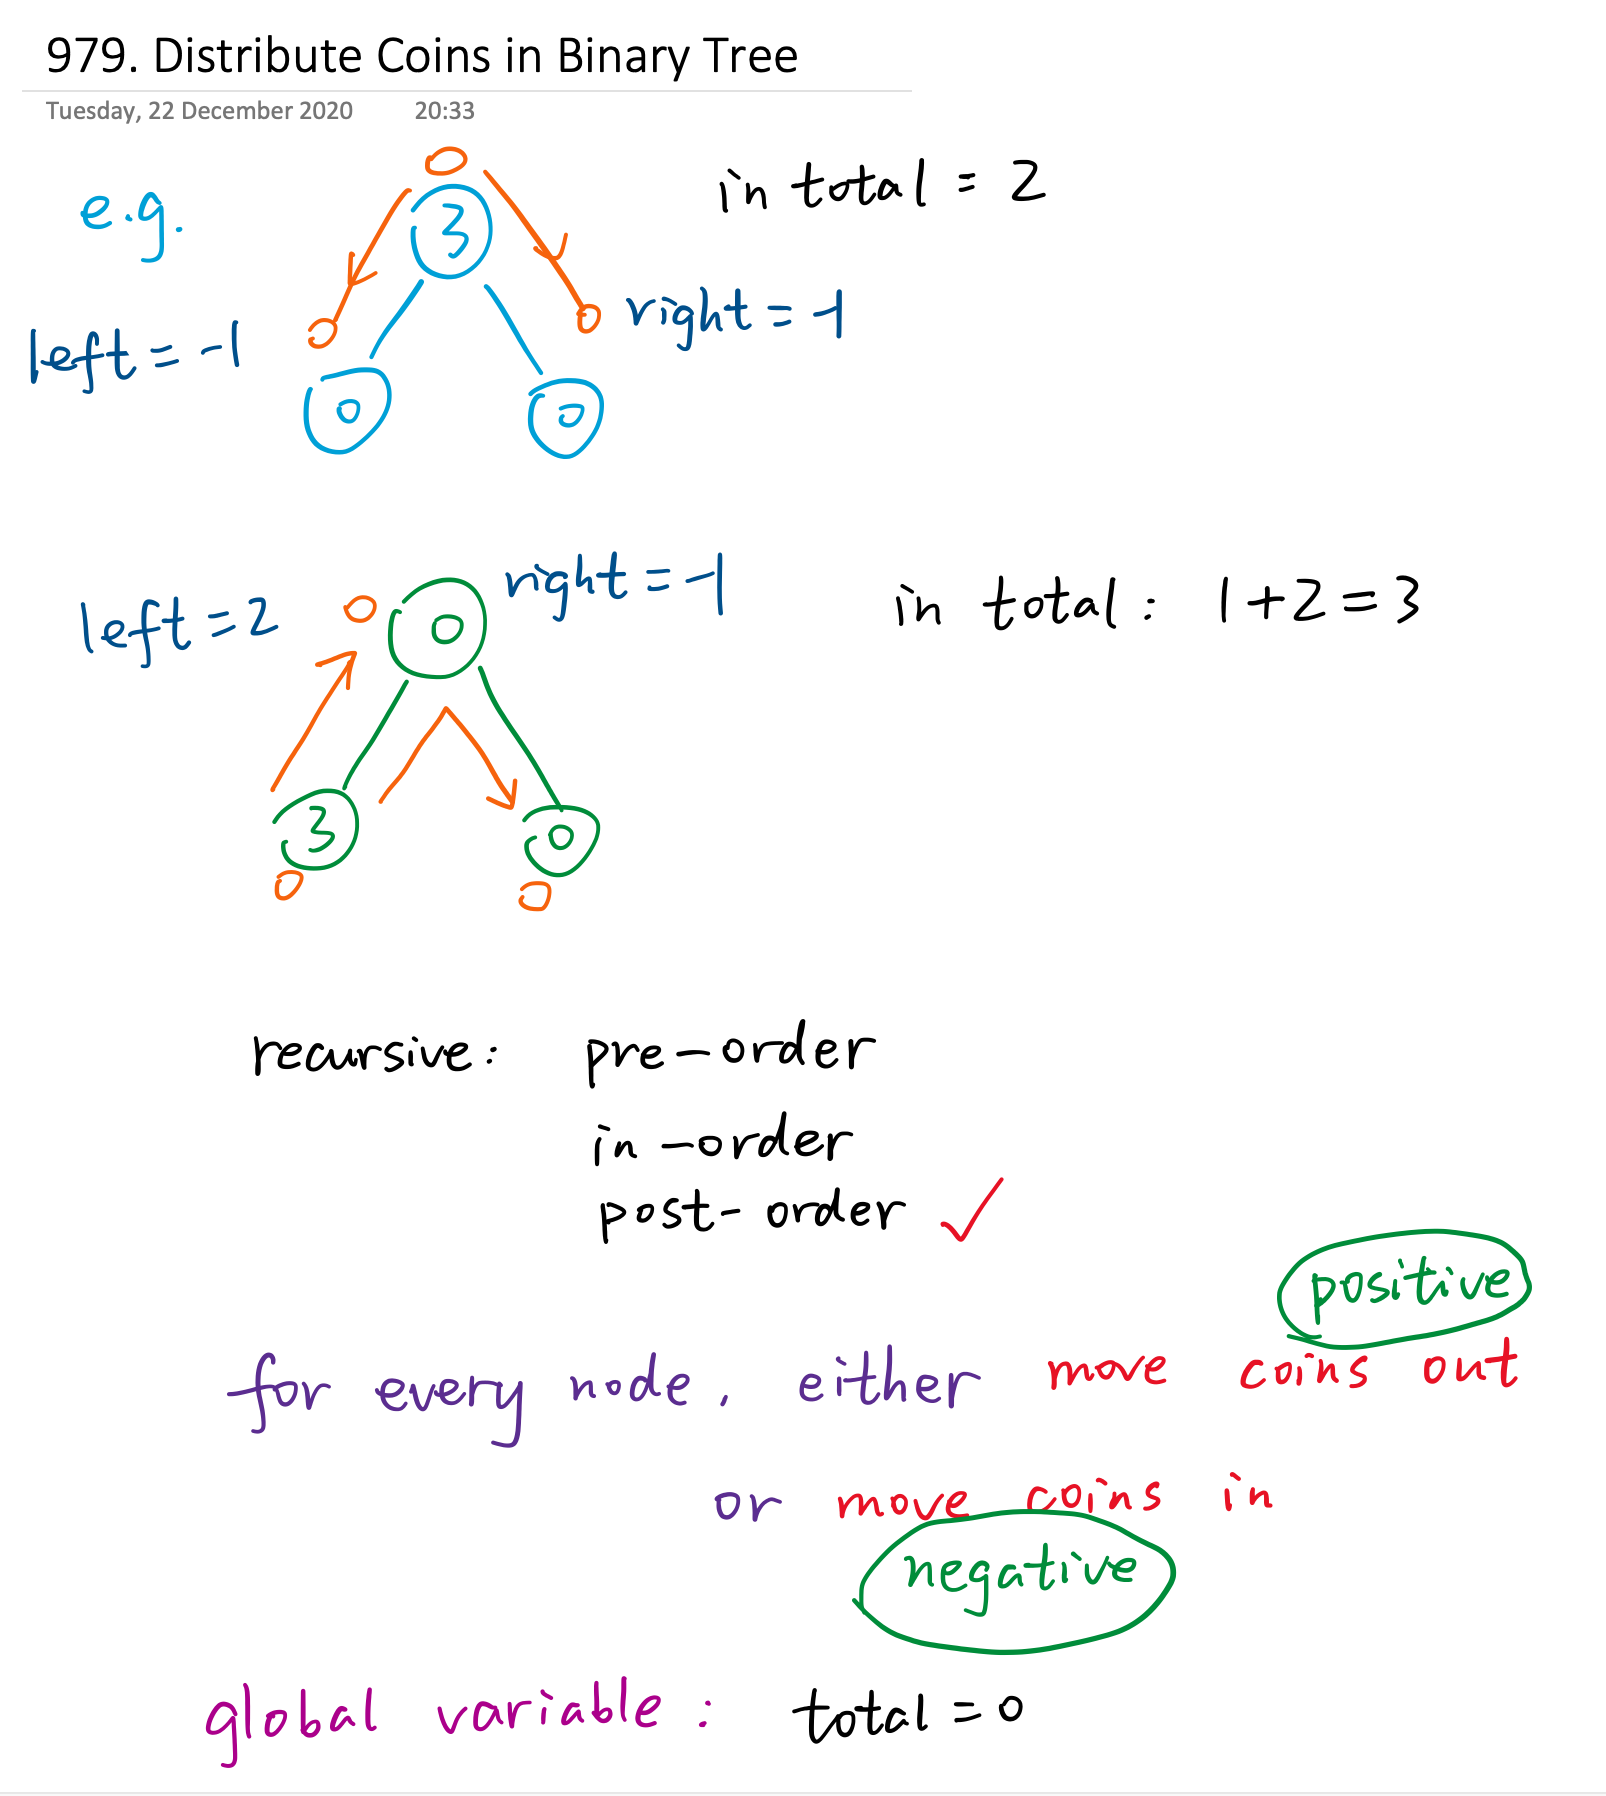 979. Distribute Coins in Binary Tree
Tuesday, 22 December 2020 20:33
e.g.
in total = 2
3
left = -1
right = -1
0 0
left = 2
right = -1
in total : 1+2=3
0
3 0
recursive: pre-order
in-order
post-order ✓
positive
for every node, either move coins out
or move coins in
negative
global variable : total = 0